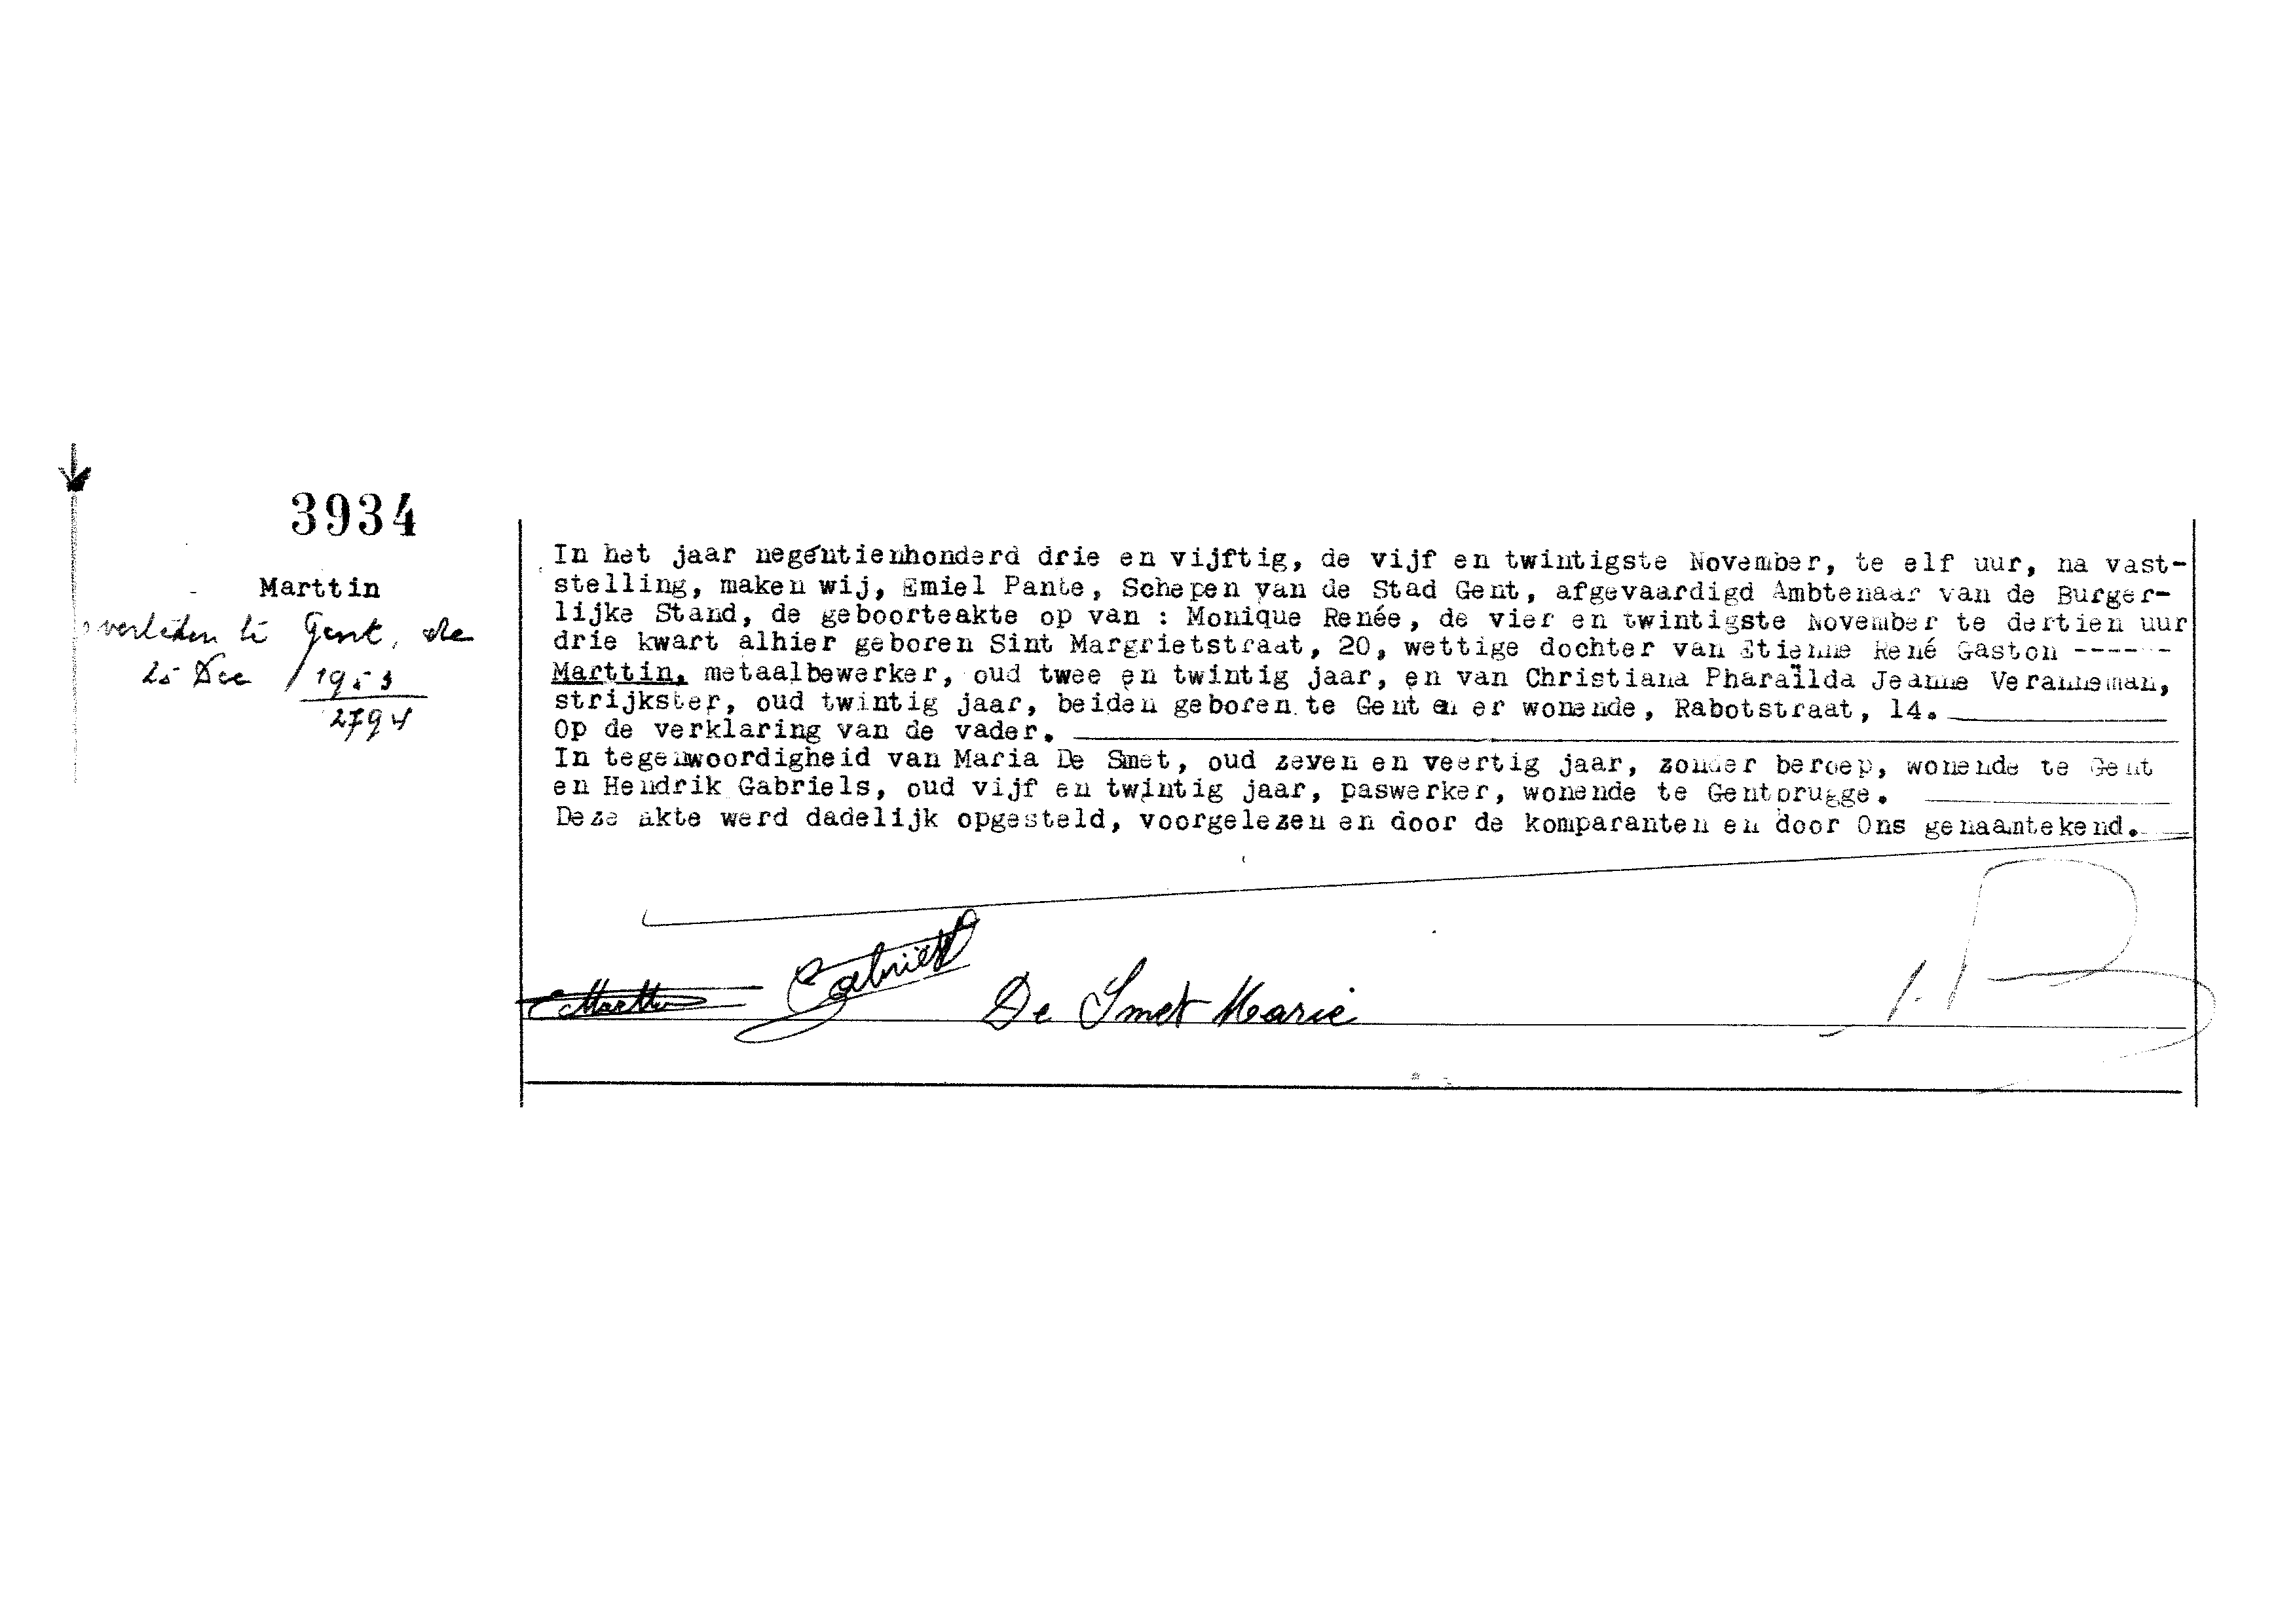 3934
Marttin
overleden te Gent, de
25 Dec 1953
2794
In het jaar negentienhonderd drie en vijftig, de vijf en twintigste November, te elf uur, na vast-
stelling, maken wij, Emiel Pante, Schepen van de Stad Gent, afgevaardigd Ambtenaar van de Burger-
lijke Stand, de geboorteakte op van : Monique Renée, de vier en twintigste November te dertien uur
drie kwart alhier geboren Sint Margrietstraat, 20, wettige dochter van Etienne René Gaston -------
Marttin, metaalbewerker, oud twee en twintig jaar, en van Christiana Pharaïlda Jeanne Veranneman,
strijkster, oud twintig jaar, beiden geboren te Gent en er wonende, Rabotstraat, 14.
Op de verklaring van de vader.
In tegenwoordigheid van Maria De Smet, oud zeven en veertig jaar, zonder beroep, wonende te Gent
en Hendrik Gabriels, oud vijf en twintig jaar, paswerker, wonende te Gentbrugge.
Deze akte werd dadelijk opgesteld, voorgelezen en door de komparanten en door Ons genaamtekend.
EMarttin Gabriels De Smet Marie